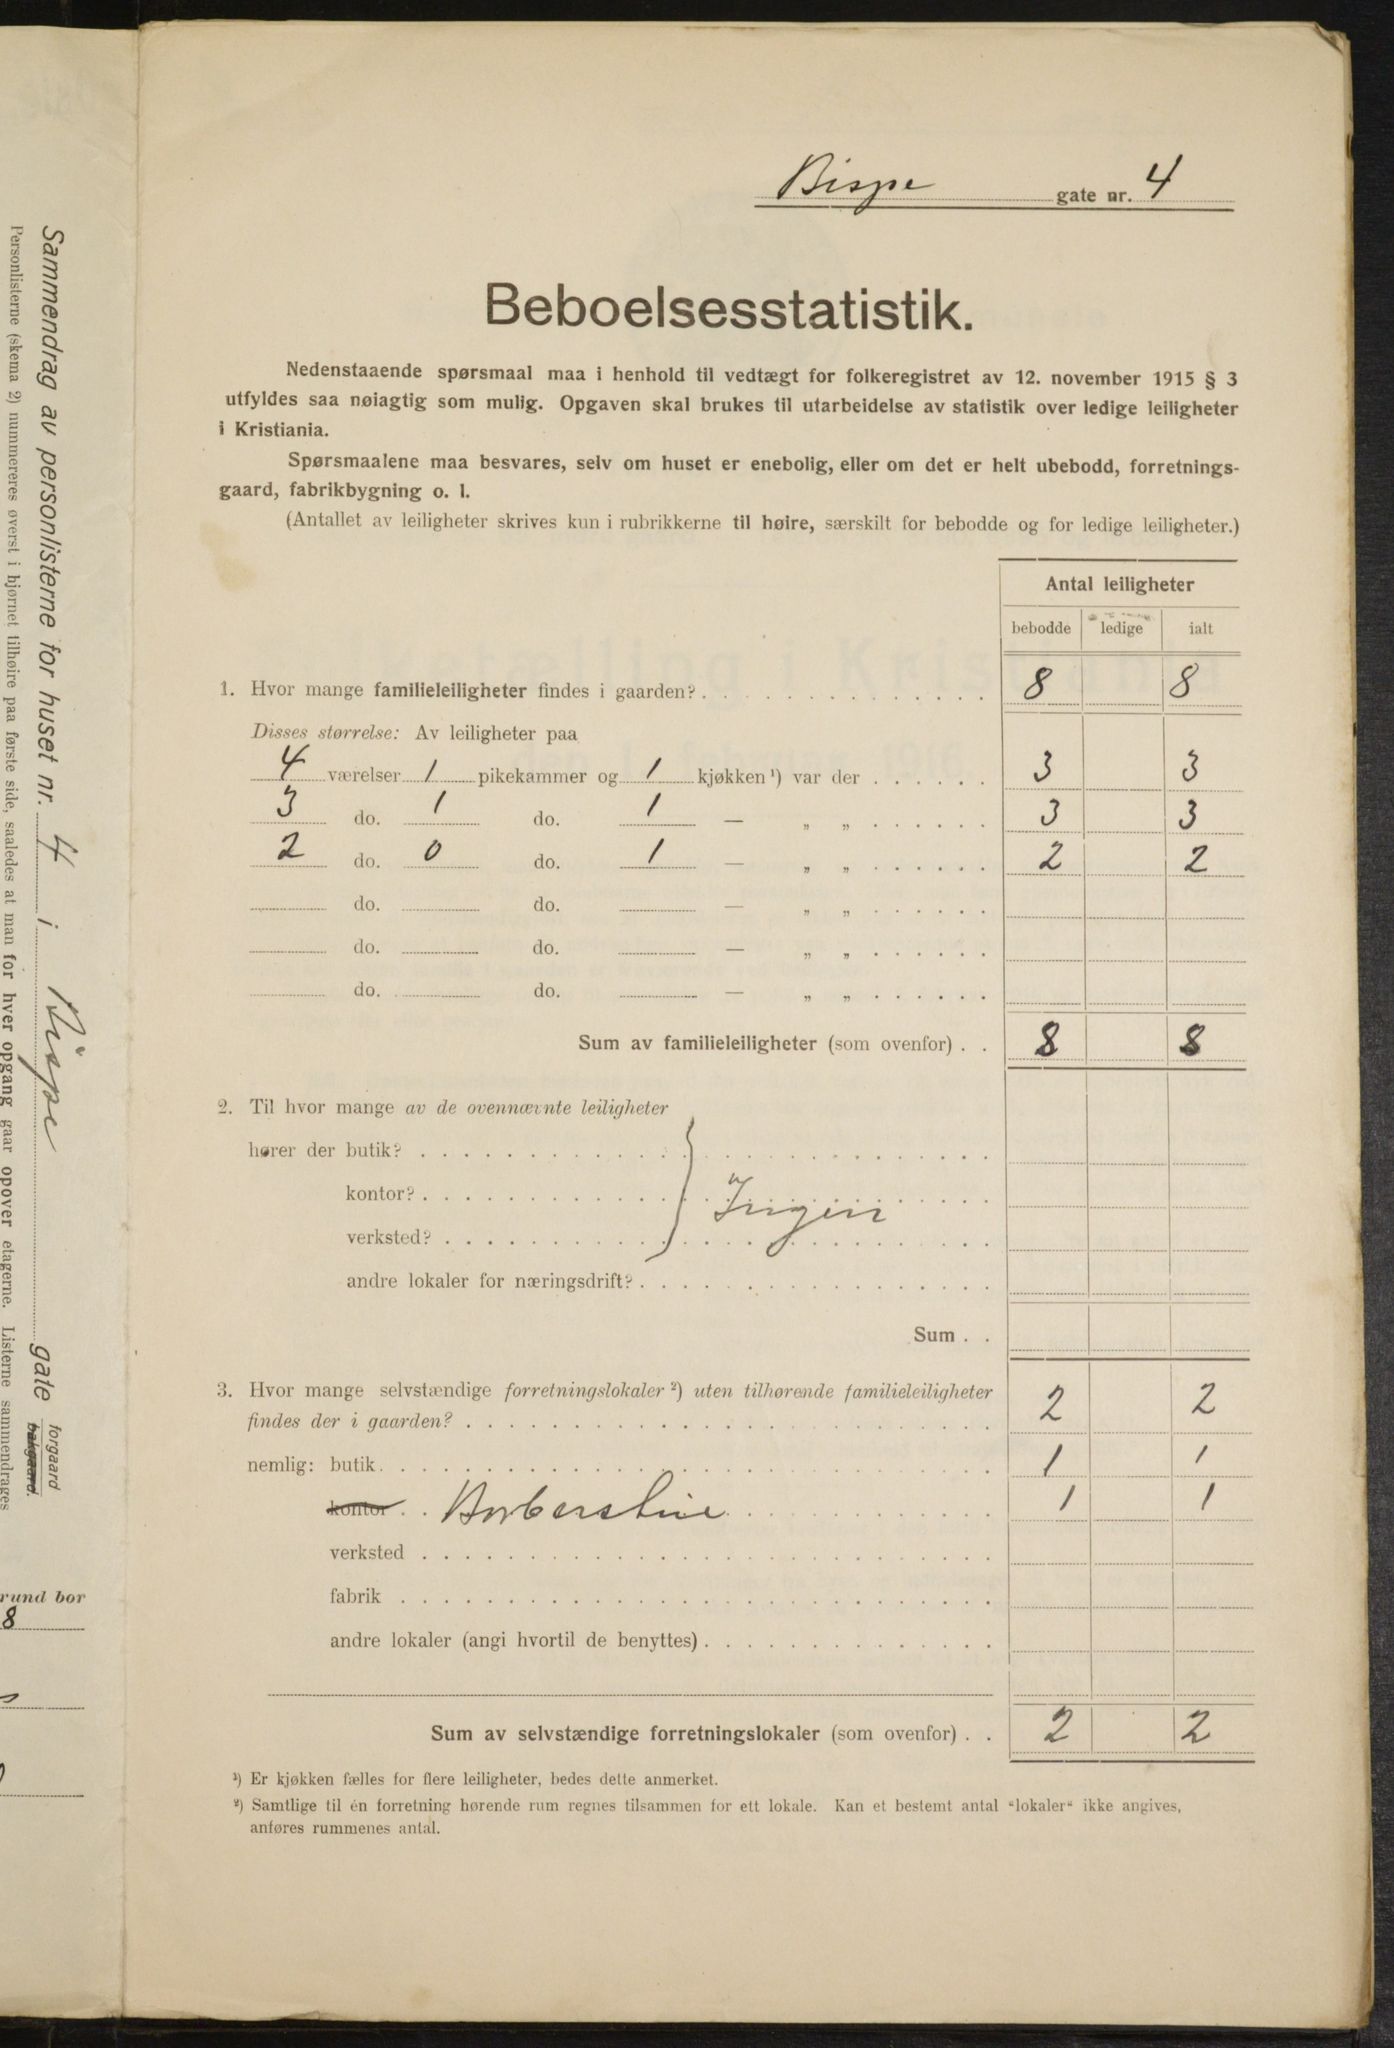 Bispe gate nr. 4
Beboelsesstatistik.
Nedenstaaende spørsmaal maa i henhold til vedtægt for folkeregistret av 12. november 1915 § 3
utfyldes saa nøiagtig som mulig. Opgaven skal brukes til utarbeidelse av statistik over ledige leiligheter
i Kristiania.
Spørsmaalene maa besvares, selv om huset er enebolig, eller om det er helt ubebodd, forretnings-
gaard, fabrikbygning o. l.
(Antallet av leiligheter skrives kun i rubrikkerne til høire, særskilt for bebodde og for ledige leiligheter.)
Antal leiligheter
bebodde ledige ialt
1. Hvor mange familieleiligheter findes i gaarden? 8 8
Disses størrelse: Av leiligheter paa
4 værelser 1 pikekammer og 1 kjøkken ¹) var der 3 3
3 do. 1 do. 1 — „ „ 3 3
2 do. 0 do. 1 — „ „ 2 2
do. do. — „ „
do. do. — „ „
do. do. — „ „
Sum av familieleiligheter (som ovenfor) . . 8 8
2. Til hvor mange av de ovennævnte leiligheter
hører der butik?
kontor? Ingen
verksted?
andre lokaler for næringsdrift?
Sum . .
3. Hvor mange selvstændige forretningslokaler ²) uten tilhørende familieleiligheter
findes der i gaarden? 2 2
nemlig: butik 1 1
kontor Barberstue 1 1
verksted
fabrik
andre lokaler (angi hvortil de benyttes)
Sum av selvstændige forretningslokaler (som ovenfor) . . 2 2
¹) Er kjøkken fælles for flere leiligheter, bedes dette anmerket.
²) Samtlige til én forretning hørende rum regnes tilsammen for ett lokale. Kan et bestemt antal “lokaler“ ikke angives,
anføres rummenes antal.
Sammendrag av personlisterne for huset nr. 4 i Bispe gate forgaard bakgaard.
Personlisterne (skema 2) nummereres øverst i hjørnet tilhøire paa første side, saaledes at man for hver opgang gaar opover etagerne. Listerne sammendrages
rund bor
8